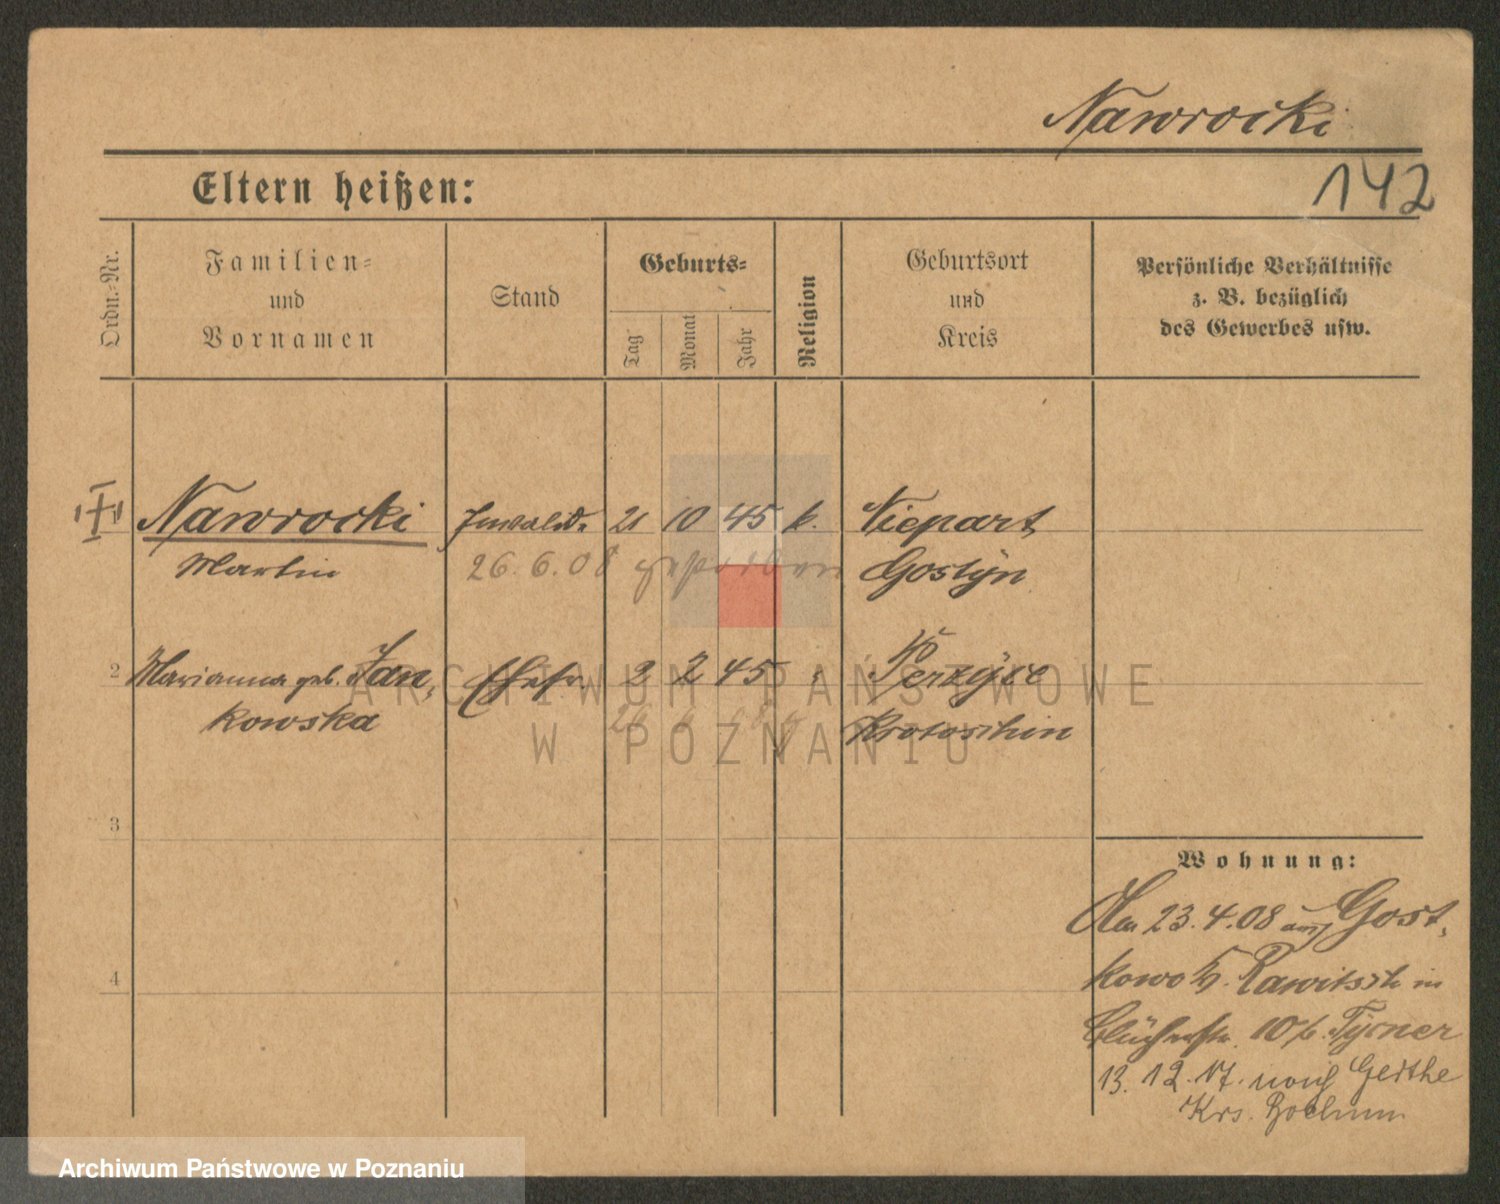 Nawrocki
Eltern heißen:
142
Ordn.-Nr.
Familien-
und
Vornamen
Stand
Geburts-
Tag
Monat
Jahr
Religion
Geburtsort
und
Kreis
Persönliche Verhältnisse
z. B. bezüglich
des Gewerbes usw.
Nawrocki Invalide 21 10 45 k. Niepart
Martin 26.6.08 gestorben Gostyn
2 Marianna geb. Jan- Ehefr. 2 2 45 " Perzyce
kowska Krotoschin
3
Wohnung:
Am 23.4.08 aus Gost-
kowo Kr. Rawitsch in
4
Blücherstr. 10 b. Tyrner
13.12.17. nach Gerthe
Krs. Bochum
ARCHIWUM PAŃSTWOWE
W POZNANIU
Archiwum Państwowe w Poznaniu